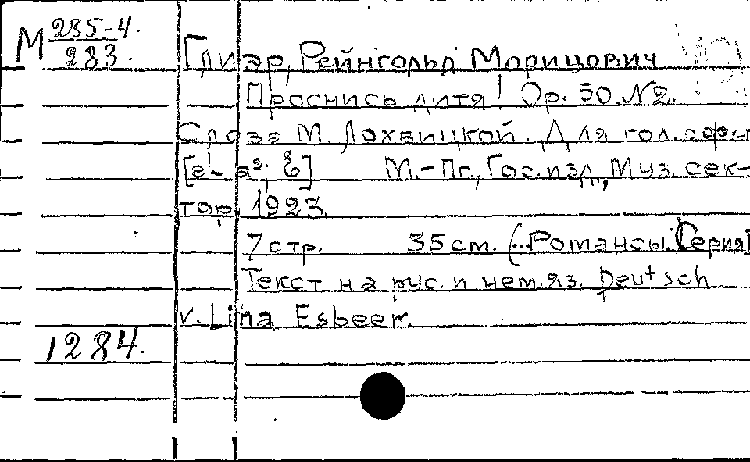 М 285-4.
283.
Глиэр, Рейнгольд Морицович
Проснись дитя! Op. 50, №2.
Слова М. Лохвицкой. Для гол. с фп
М.-Пг., Гос. изд., Муз. сек-
тор, 1923.
7 стр. 35 см. (...Романсы. Серия
Текст на рус. и нем. яз. Deutsch
v. Lina Esbeer.
1284.